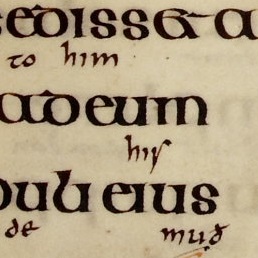 sediss& a
to him
ad eum
his
puli eius
de muð